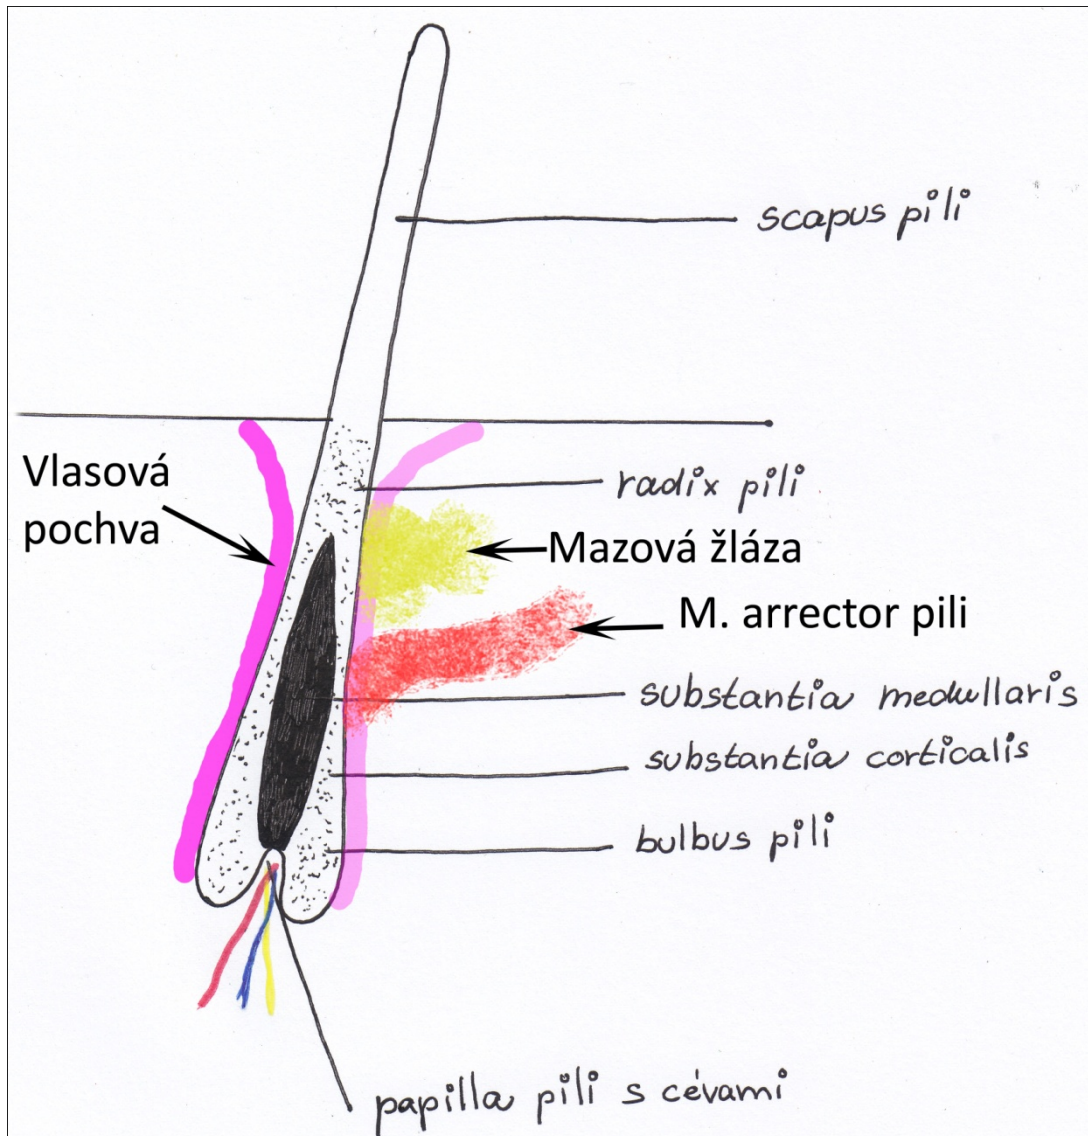 scapus pili
Vlasová
pochva
radix pili
Mazová žláza
M. arrector pili
substantia medullaris
substantia corticalis
bulbus pili
papilla pili s cévami